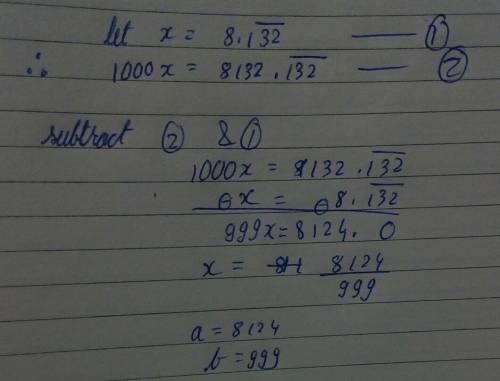 let x = 8.1\overline{32} —— ①
∴ 1000x = 8132.\overline{132} —— ②
subtract ② & ①
1000x = 8132.\overline{132}
⊖x = ⊖8.1\overline{32}
999x = 8124.0
x = 8124/999
a = 8124
b = 999